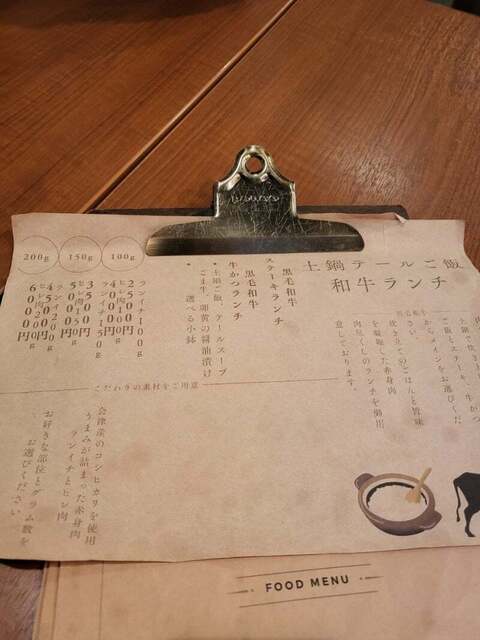 土鍋テールご飯
和牛ランチ
ご飯とステーキ、牛かつ
からメインをお選びくだ
さい
炊き立てのごはんと旨味
を凝縮した赤身肉
肉尽くしのランチを御用
意しております。
黒毛和牛
ステーキランチ
黒毛和牛
牛かつランチ
・土鍋ご飯、テールスープ
・ごま牛、卵黄の醤油漬け
選べる小鉢
100g
ランイチ100g
2500円
ヒレ肉100g
3500円
150g
ランイチ150g
3500円
ヒレ肉150g
5000円
200g
ランイチ200g
4500円
ヒレ肉200g
6000円
こだわりの素材をご用意
会津産のコシヒカリを使用
うまみが詰まった赤身肉
ランイチとヒレ肉
お好きな部位とグラム数を
お選びください
FOOD MENU